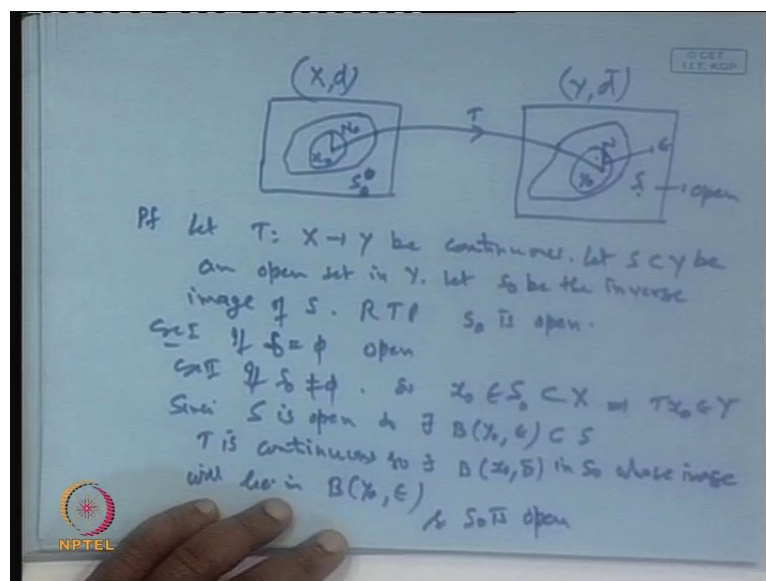 © CET
I.I.T. KGP
(X,d)
(Y,d̄)
T
N0
x0
S0
N
ϵ
y0
S → open
Pf Let T: X → Y be continuous. Let S ⊂ Y be
an open set in Y. Let S0 be the inverse
image of S. RTP S0 is open.
Case I If S0 = φ open
Case II If S0 ≠ φ. So x0 ∈ S0 ⊂ X ⇒ Tx0 ∈ Y
Since S is open so ∃ B(y0, ϵ) ⊂ S
T is continuous so ∃ B(x0, δ) in S0 whose image
will lie in B(y0, ϵ)
so S0 is open
NPTEL